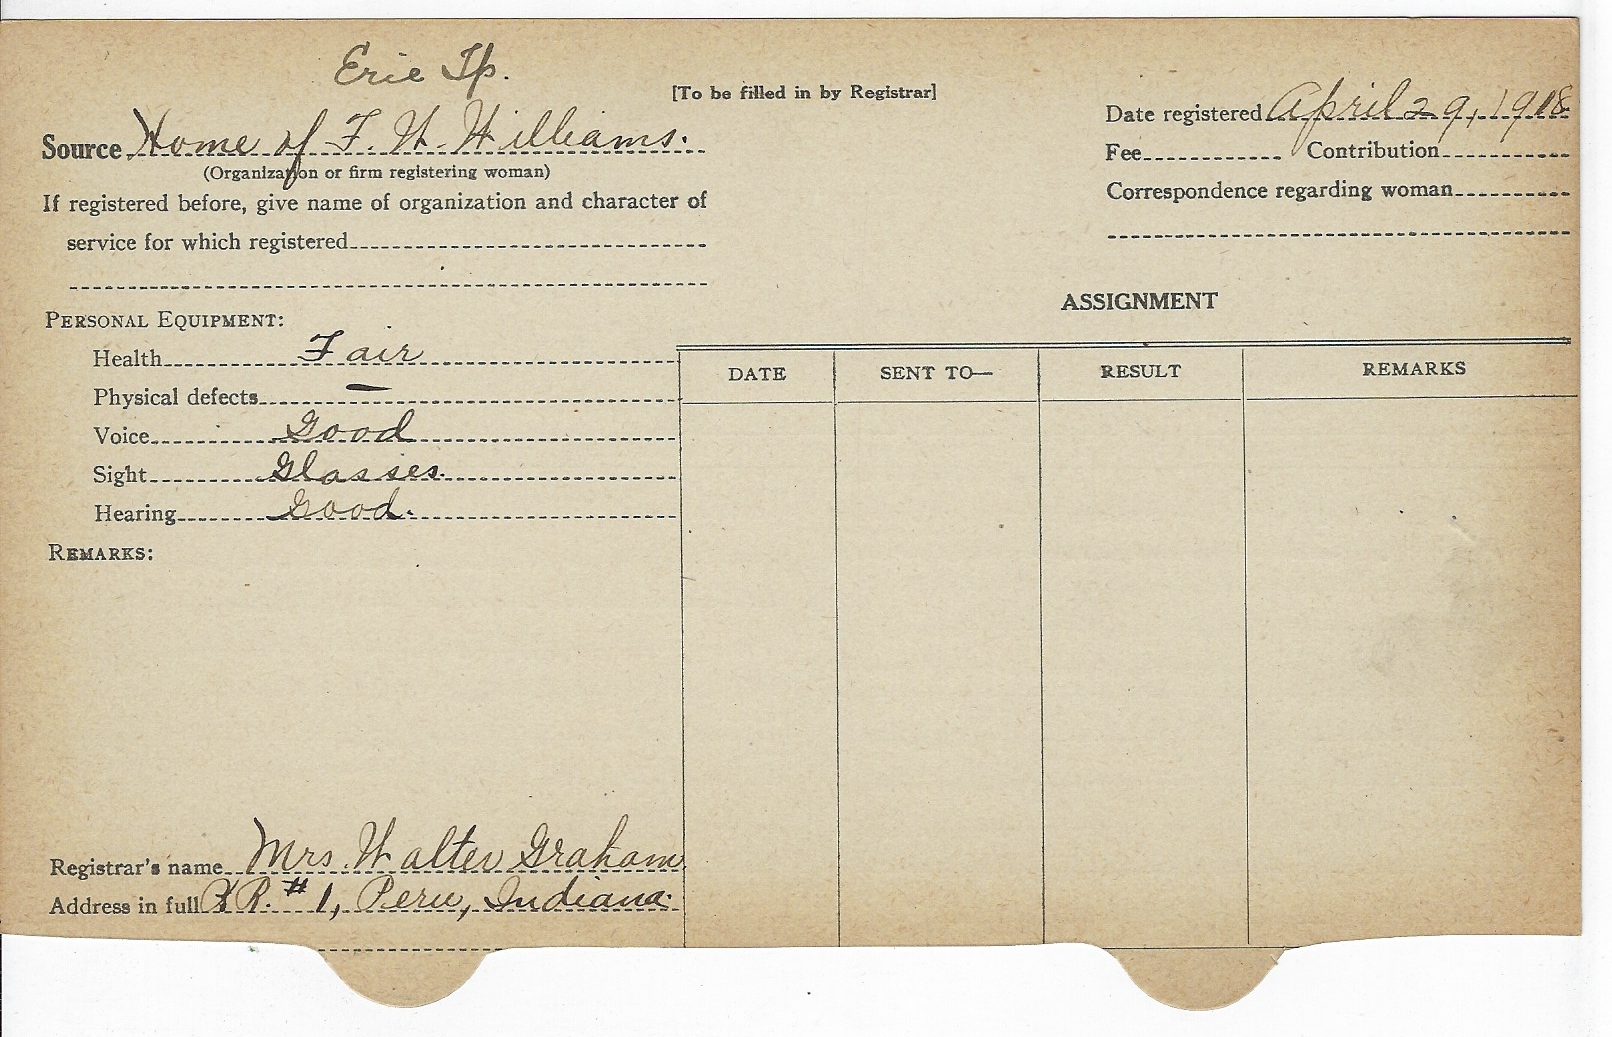 Erie Tp.
[To be filled in by Registrar]
Source Home of F. W. Williams.
(Organization or firm registering woman)
If registered before, give name of organization and character of
service for which registered
Date registered April 29, 1918
Fee Contribution
Correspondence regarding woman
PERSONAL EQUIPMENT:
Health Fair
Physical defects —
Voice Good
Sight Glasses.
Hearing Good.
REMARKS:
ASSIGNMENT
DATE SENT TO— RESULT REMARKS
Registrar's name Mrs. Walter Graham
Address in full R. # 1, Peru, Indiana.